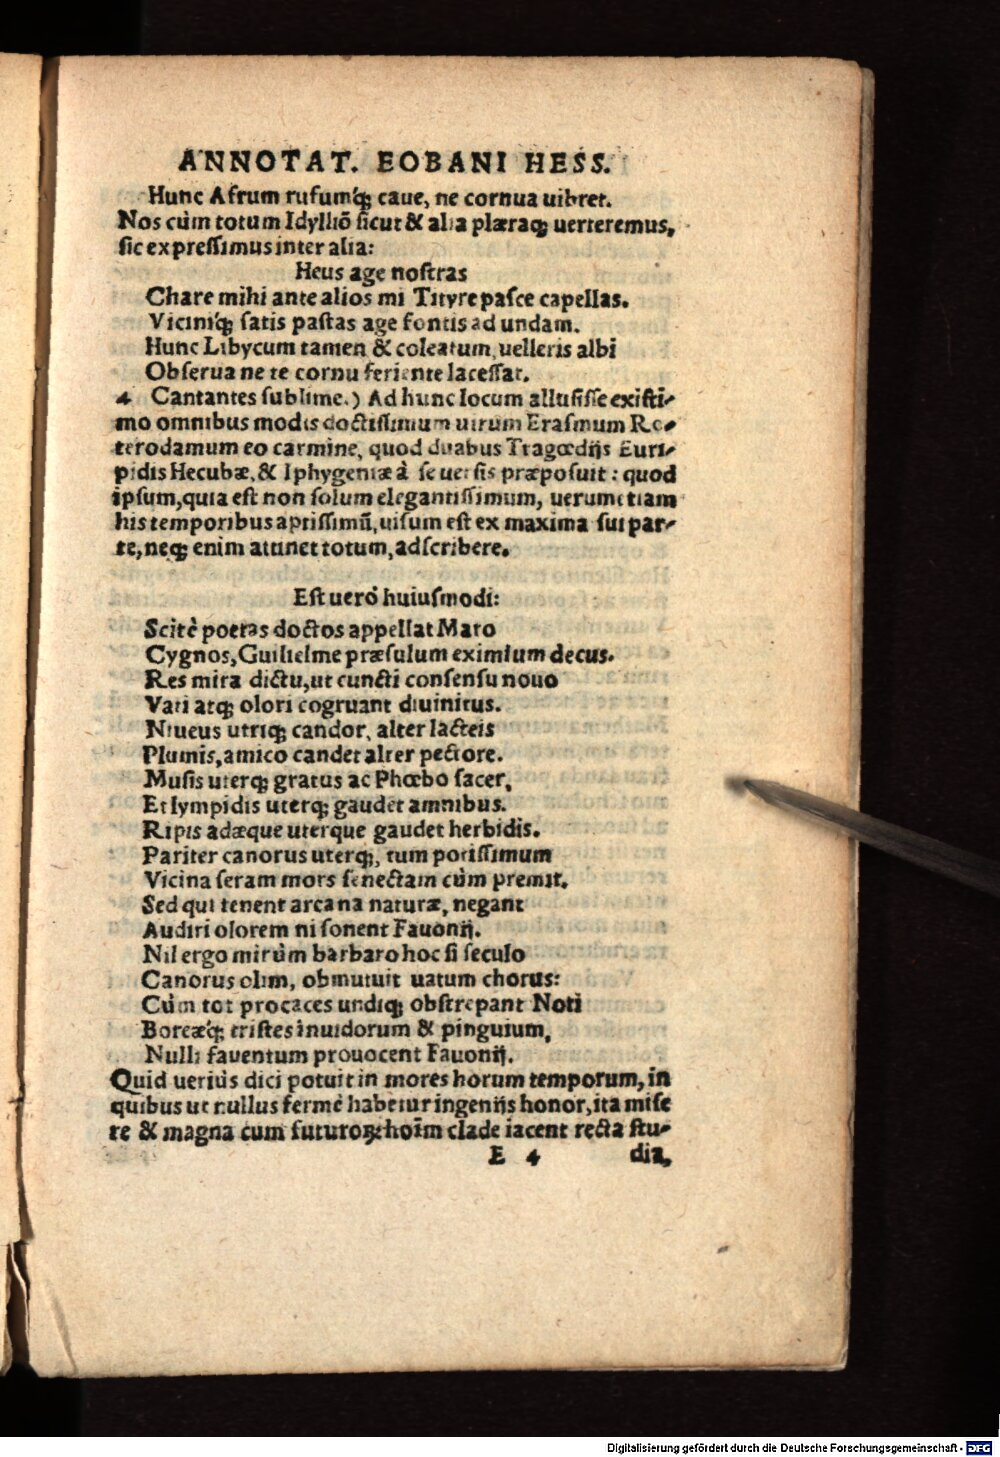 ANNOTAT. EOBANI HESS.
Hunc Afrum rufumq́; caue, ne cornua uibret.
Nos cùm totum Idylliō sicut & alia plæraq; uerteremus,
sic expressimus inter alia:
Heus age nostras
Chare mihi ante alios mi Tityre pasce capellas.
Viciniq́; satis pastas age fontis ad undam.
Hunc Libycum tamen & coleatum, uelleris albi
Obserua ne te cornu feriente lacessat.
4 Cantantes sublime.) Ad hunc locum allusisse existi-
mo omnibus modis doctissimum uirum Erasmum Ro-
terodamum eo carmine, quod duabus Tragœdijs Euri-
pidis Hecubæ, & Iphygeniæ à se uersis præposuit: quod
ipsum, quia est non solum elegantissimum, uerumetiam
his temporibus aptissimū, uisum est ex maxima sui par-
te, neq; enim attinet totum, adscribere.
Est uerò huiusmodi:
Scitè poetas doctos appellat Maro
Cygnos, Guilielme præsulum eximium decus.
Res mira dictu, ut cuncti consensu nouo
Vati atq; olori cogruant diuinitus.
Niueus utriq; candor, alter lacteis
Plumis, amico candet alter pectore.
Musis uterq; gratus ac Phœbo sacer,
Et lympidis uterq; gaudet amnibus.
Ripis adæque uterque gaudet herbidis.
Pariter canorus uterq;, tum potissimum
Vicina seram mors senectam cùm premit.
Sed qui tenent arcana naturæ, negant
Audiri olorem ni sonent Fauonij.
Nil ergo mirùm barbaro hoc si seculo
Canorus olim, obmutuit uatum chorus:
Cùm tot procaces undiq; obstrepant Noti
Boreæq́; tristes inuidorum & pinguium,
Nulli fauentum prouocent Fauonij.
Quid uerius dici potuit in mores horum temporum, in
quibus ut nullus fermè habetur ingenijs honor, ita mise
re & magna cum futuroꝝ hoīm clade iacent recta stu-
E 4 dia,
Digitalisierung gefördert durch die Deutsche Forschungsgemeinschaft - DFG